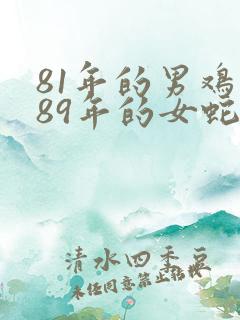 81年的男鸡
89年的女蛇
清水四季豆
未经同意禁止搬运